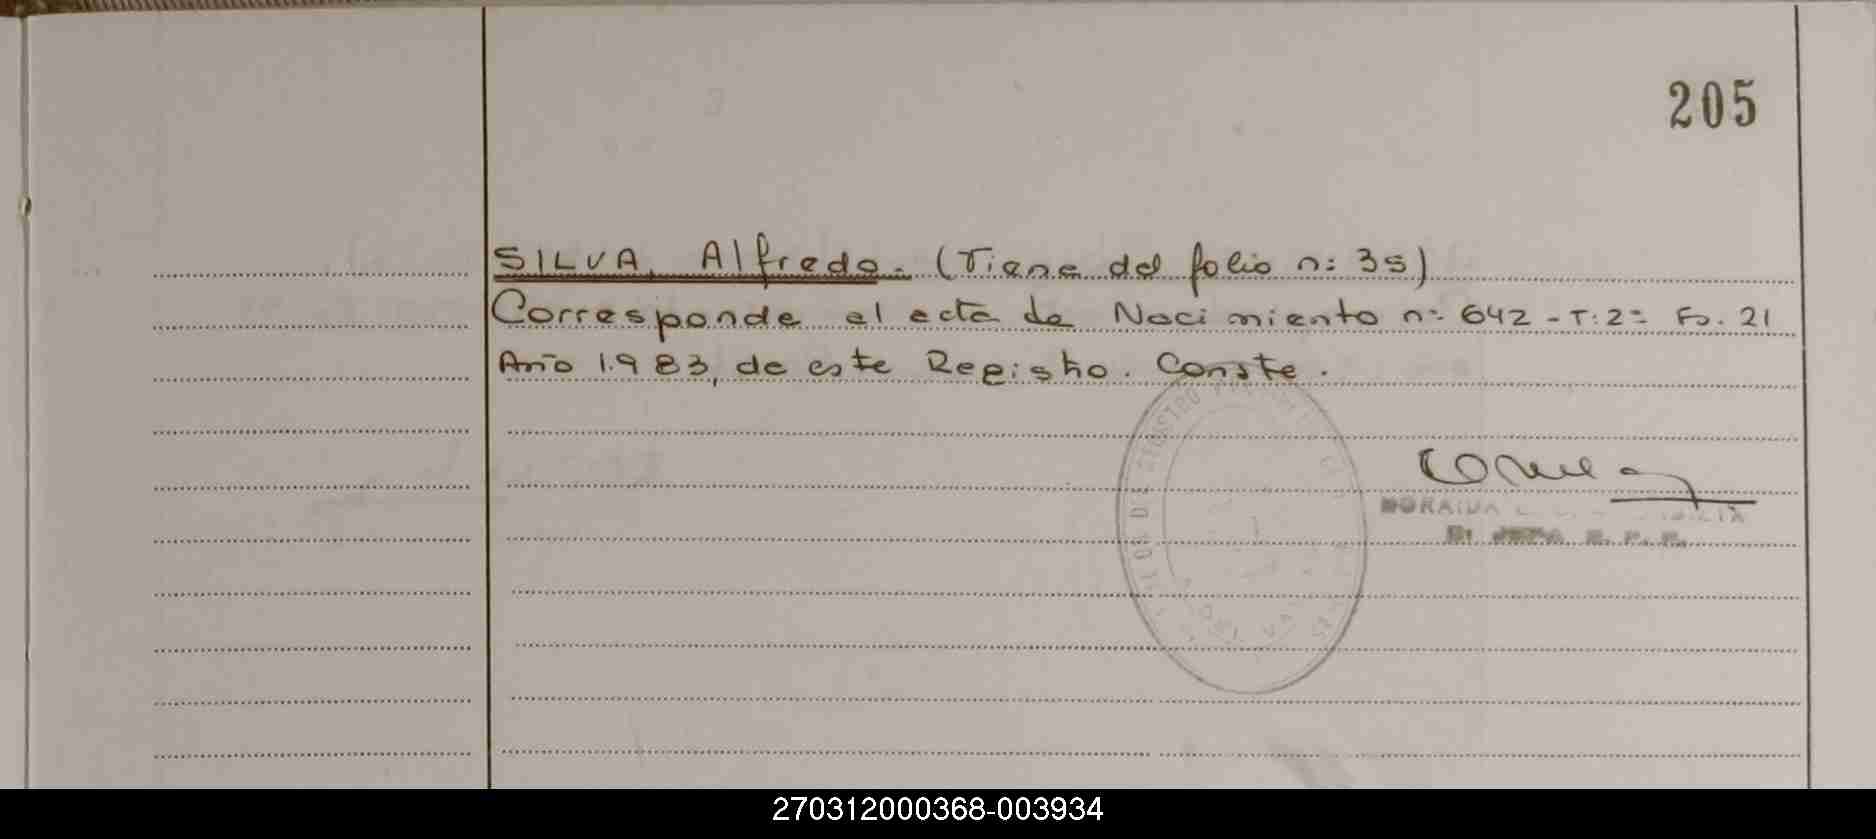 205
SILVA, Alfredo. (Viene del folio n: 35)
Corresponde al acta de Nacimiento n: 642 - T: 2: Fo. 21
Año 1.983, de este Registro. Conste.
270312000368-003934